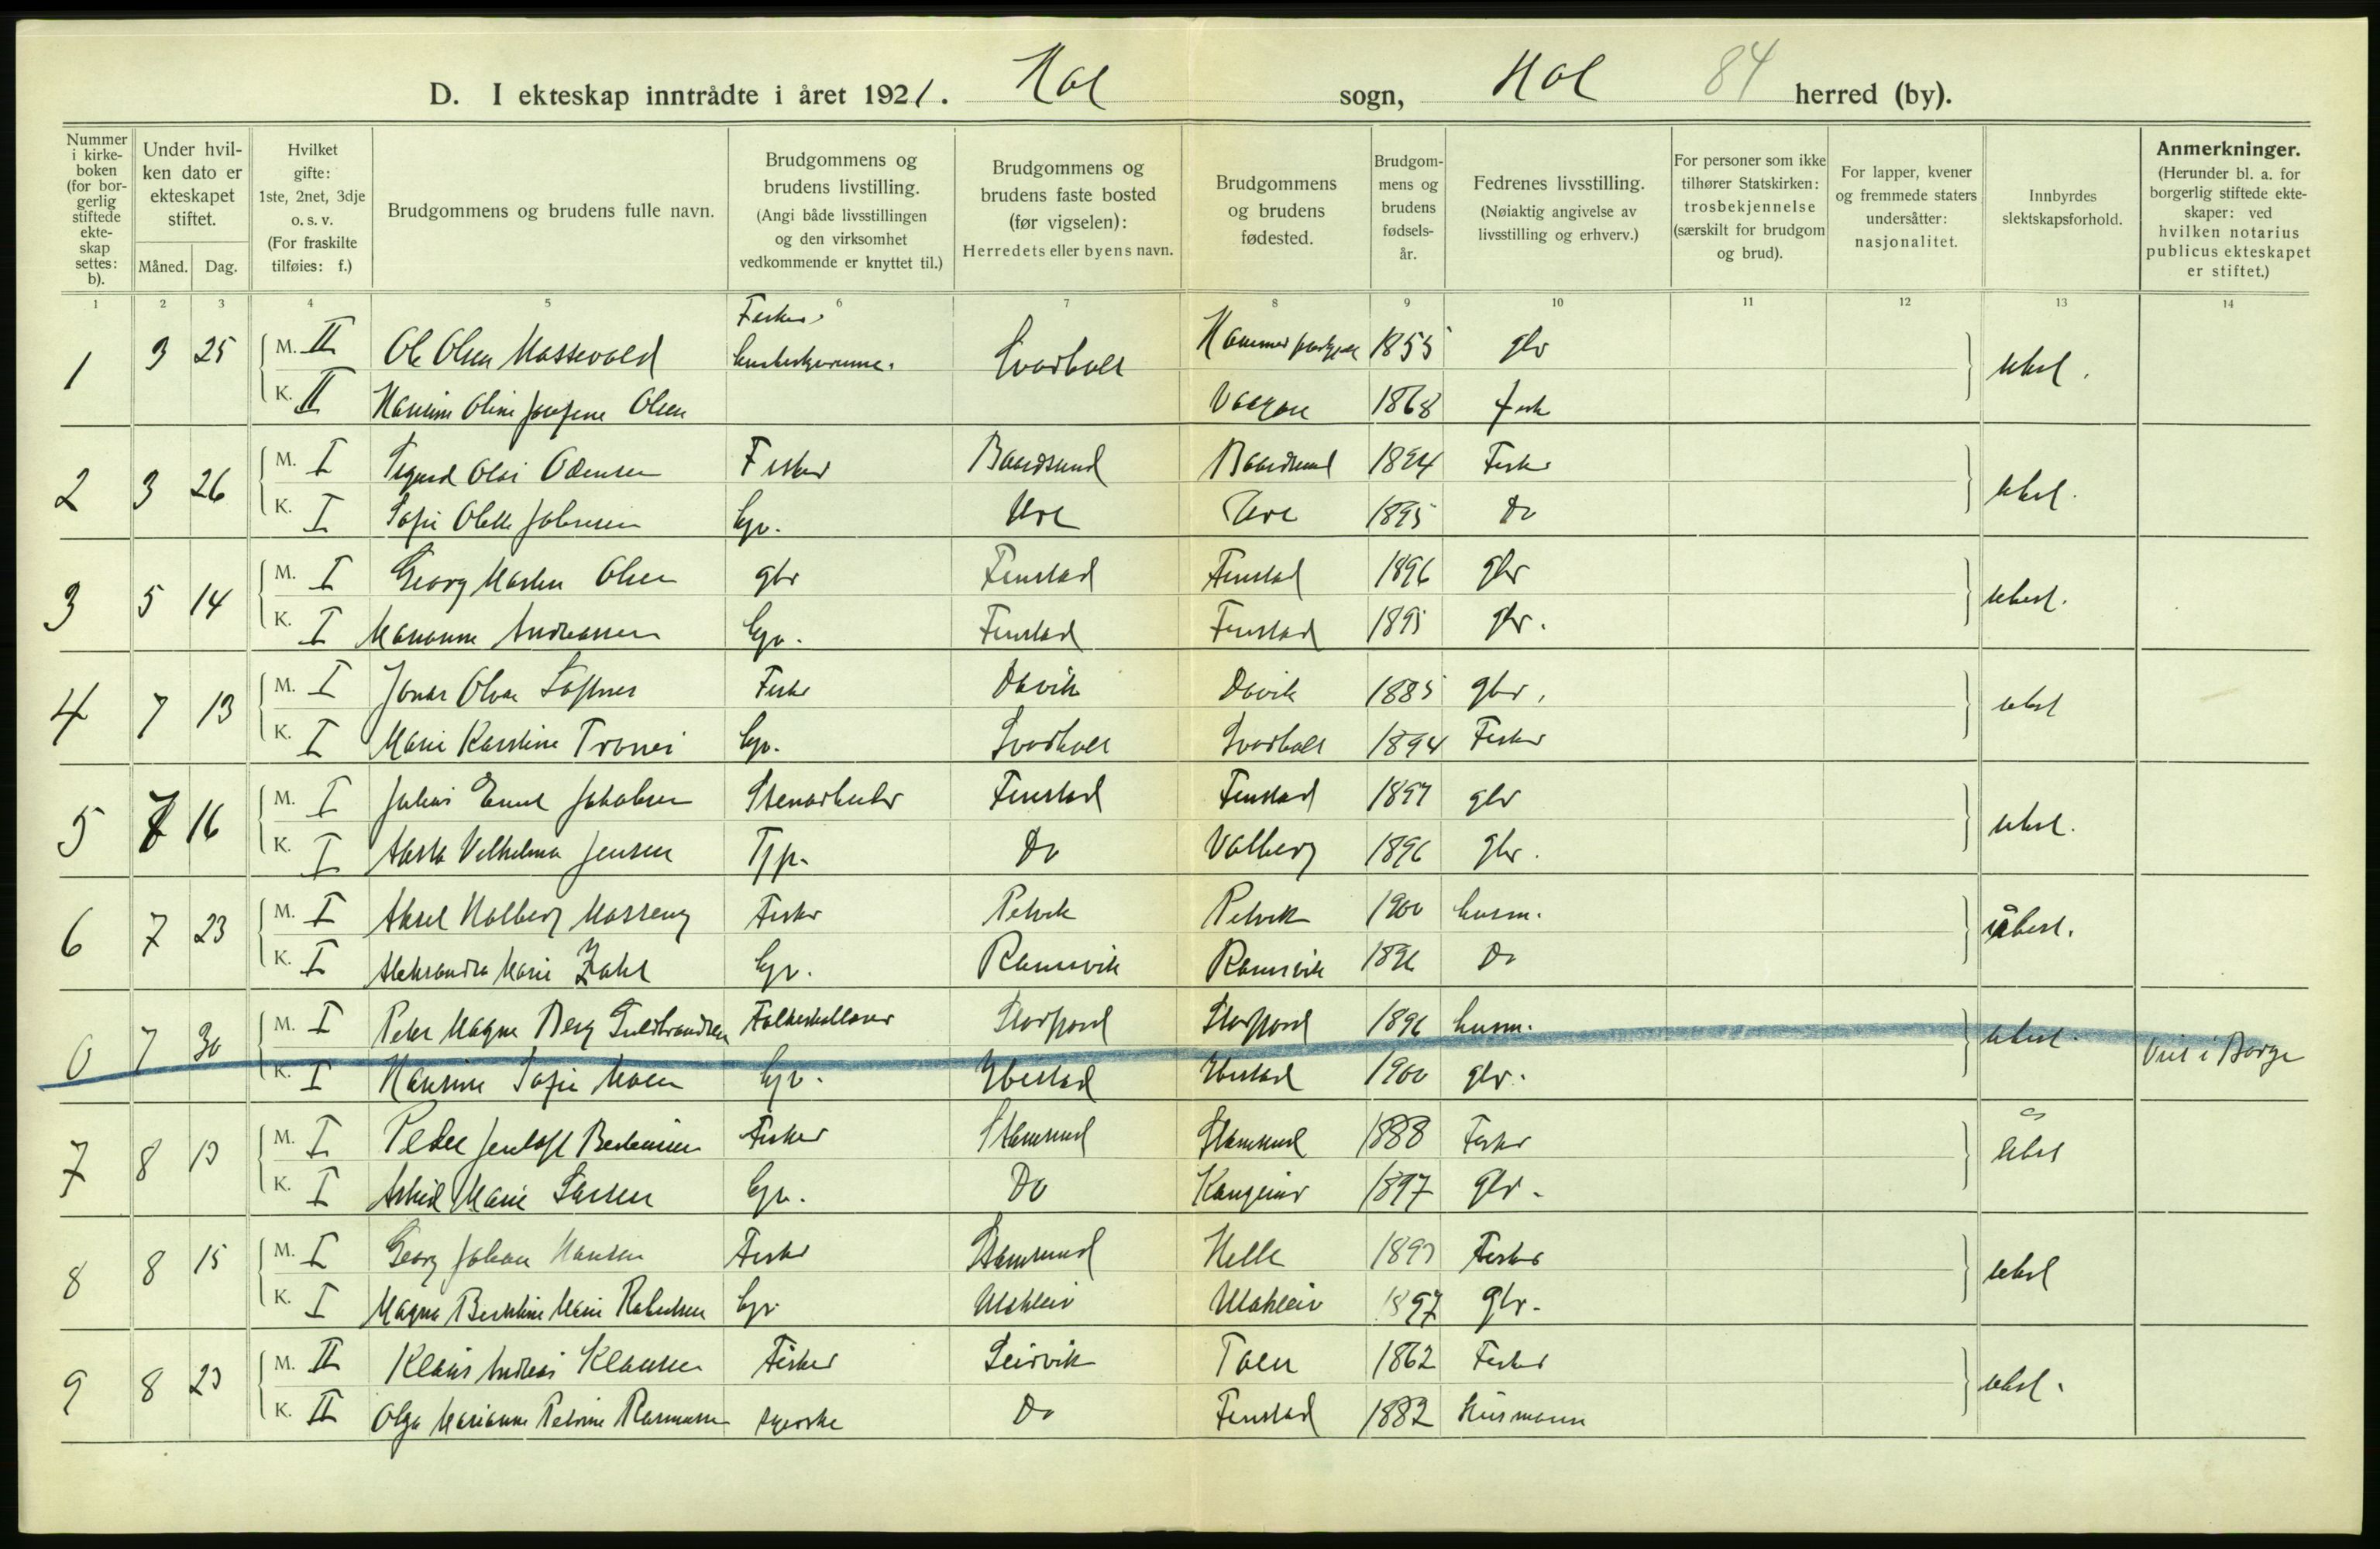 D. I ekteskap inntrådte i året 1921. Hol sogn, Hol 84 herred (by).
Nummer i kirkeboken (for borgerlig stiftede ekteskap settes: b).
Under hvilken dato er ekteskapet stiftet.
Måned. Dag.
Hvilket gifte: 1ste, 2net, 3dje o. s. v. (For fraskilte tilføies: f.)
Brudgommens og brudens fulle navn.
Brudgommens og brudens livstilling. (Angi både livsstillingen og den virksomhet vedkommende er knyttet til.)
Brudgommens og brudens faste bosted (før vigselen): Herredets eller byens navn.
Brudgommens og brudens fødested.
Brudgommens og brudens fødselsår.
Fedrenes livsstilling. (Nøiaktig angivelse av livsstilling og erhverv.)
For personer som ikke tilhører Statskirken: trosbekjennelse (særskilt for brudgom og brud).
For lapper, kvener og fremmede staters undersåtter: nasjonalitet.
Innbyrdes slektskapsforhold.
Anmerkninger. (Herunder bl. a. for borgerlig stiftede ekteskaper: ved hvilken notarius publicus ekteskapet er stiftet.)
1 2 3 4 5 6 7 8 9 10 11 12 13 14
1 3 25 M. II Ole Olsen Fisker Svarholt 1855 gbr ubesl.
K. II Olsen 1868 fisk
2 3 26 M. I Sigurd Olai Odensen Fisker Baardsund Baardsund 1894 Fisker ubesl.
K. I Sofie Johnsen Hp. Ure Ure 1895 Do
3 5 14 M. I Georg Olsen gbr Finstad Finstad 1896 gbr ubesl.
K. I Marianne Andreassen Hp. Finstad Finstad 1895 gbr.
4 7 13 M. I Jonas Fisker Davik Davik 1885 gbr. ubesl
K. I Marie Karstine Hp. Svarholt Svarholt 1894 Fisker
5 7 16 M. I Julius Emil Jakobsen Stenarbeider Finstad Finstad 1897 gbr ubesl.
K. I Aasta Vilhelma Jensen Tjp. Do Valberg 1896 gbr.
6 7 23 M. I Aksel Fisker Petvik Petvik 1900 husm. ubesl.
K. I Aleksandra Marie Zahl Hp. Ramsvik Ramsvik 1896 Do
0 7 30 M. I Peter Magne Berg Guldbrandsen Storfjord Storfjord 1896 husm. ubesl. Viet i Borge
K. I Hansine Sofie Moen Hp. Ibestad Ibestad 1900 gbr.
7 8 13 M. I Peder Fisker Stamsund Stamsund 1888 Fisker ubesl
K. I Astrid Marie Larsen Hp. Do 1897 gbr.
8 8 15 M. I Georg Johan Hansen Fisker Stamsund Helle 1897 Fisker ubesl
K. I Magna Marie Hp. 1897 gbr.
9 8 23 M. II Klaus Andreas Klausen Fisker Leirvik Taen 1862 Fisker ubesl.
K. II Olga Marianne Petrine Rasmussen Do Finstad 1882 Husmann